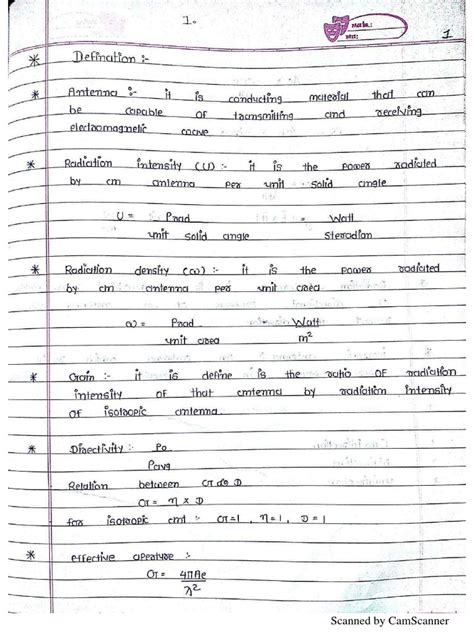 1.
Date:
No:
1
* Defination :-
* Antenna :- it is conducting material that can
be capable of transmitting and receiving
electromagnetic wave.
* Radiation intensity (U) :- it is the power radiated
by an antenna per unit solid angle
U = Prad = Watt
unit solid angle Steradian
* Radiation density (ω) :- it is the power radiated
by an antenna per unit area
ω = Prad = Watt
unit area m²
* Gain :- it is define is the ratio of radiation
intensity of that antenna by radiation intensity
of isotropic antenna.
* Directivity :- Po
Pavg
Relation between G do D
G = η x D
for isotropic ant :- G=1, η=1, D=1
* effective apeature :-
G = 4πAe
λ²
Scanned by CamScanner